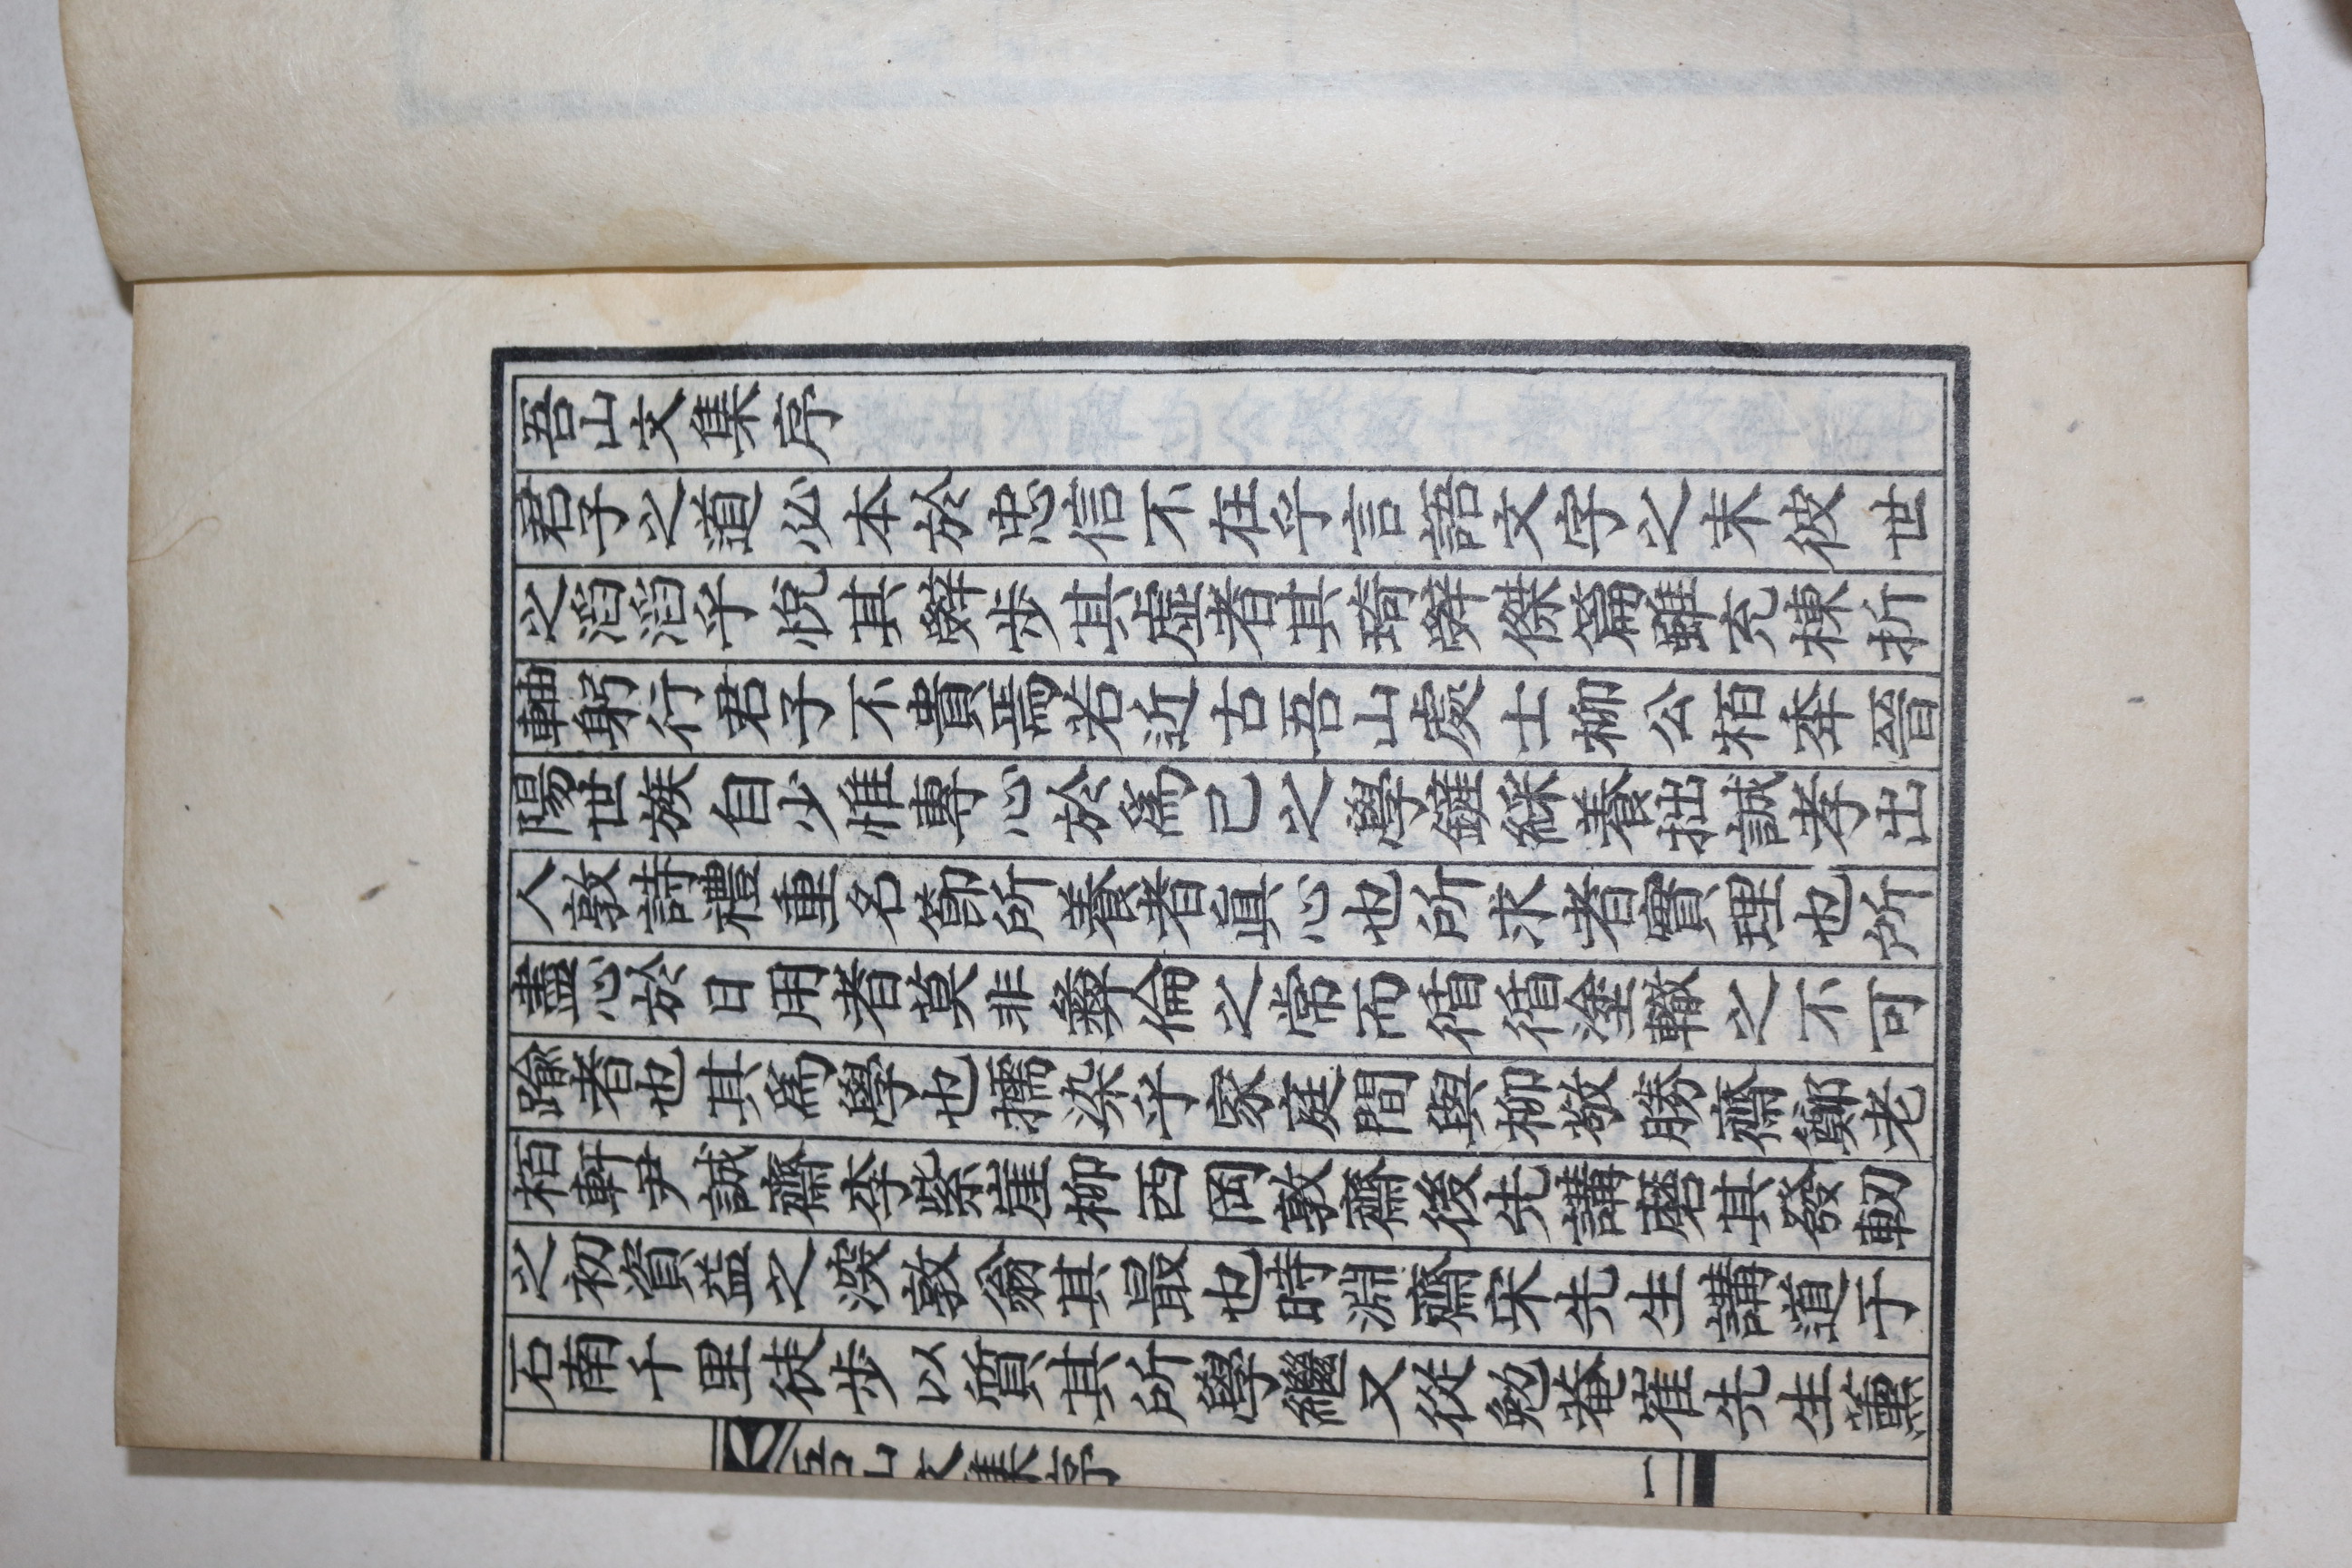 吾山文集序
君子之道必本於忠信不在乎言語文字之末彼世
之滔滔乎悅其辭步其虛者其琦辭傑篇雖充棟折
軸躬行君子不貴焉若近古吾山處士柳公栢秊晉
陽世族自少惟專心於爲己之學鏟綵養拙誠孝出
人敦詩禮重名節所養者眞心也所求者實理也所
盡心於日用者莫非彝倫之常而循循塗轍之不可
踰者也其爲學也擩染乎家庭間與柳敬勝齋鄭老
栢軒尹誠齋李紫崖柳西岡敦齋後先講磨其發軔
之初資益之深敦翁其最也時淵齋宋先生講道于
石南千里徒步以質其所學繼又從勉菴崔先生薰
吾山文集序
一